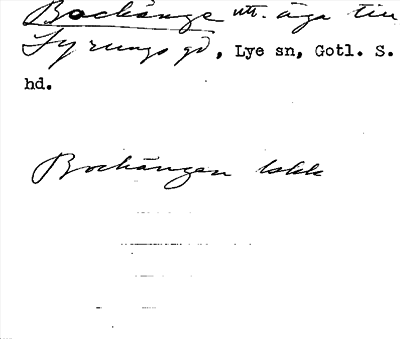 Bockänge utt. äga till
Fyrungs gd, Lye sn, Gotl. S.
hd.
Bockängen bokk